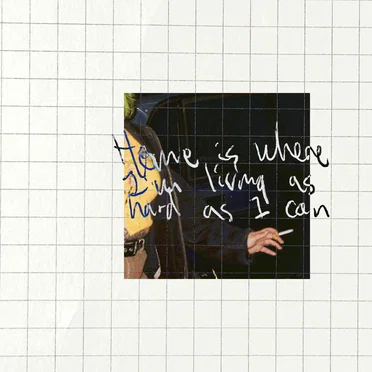 Home is where
I'm living as
hard as I can